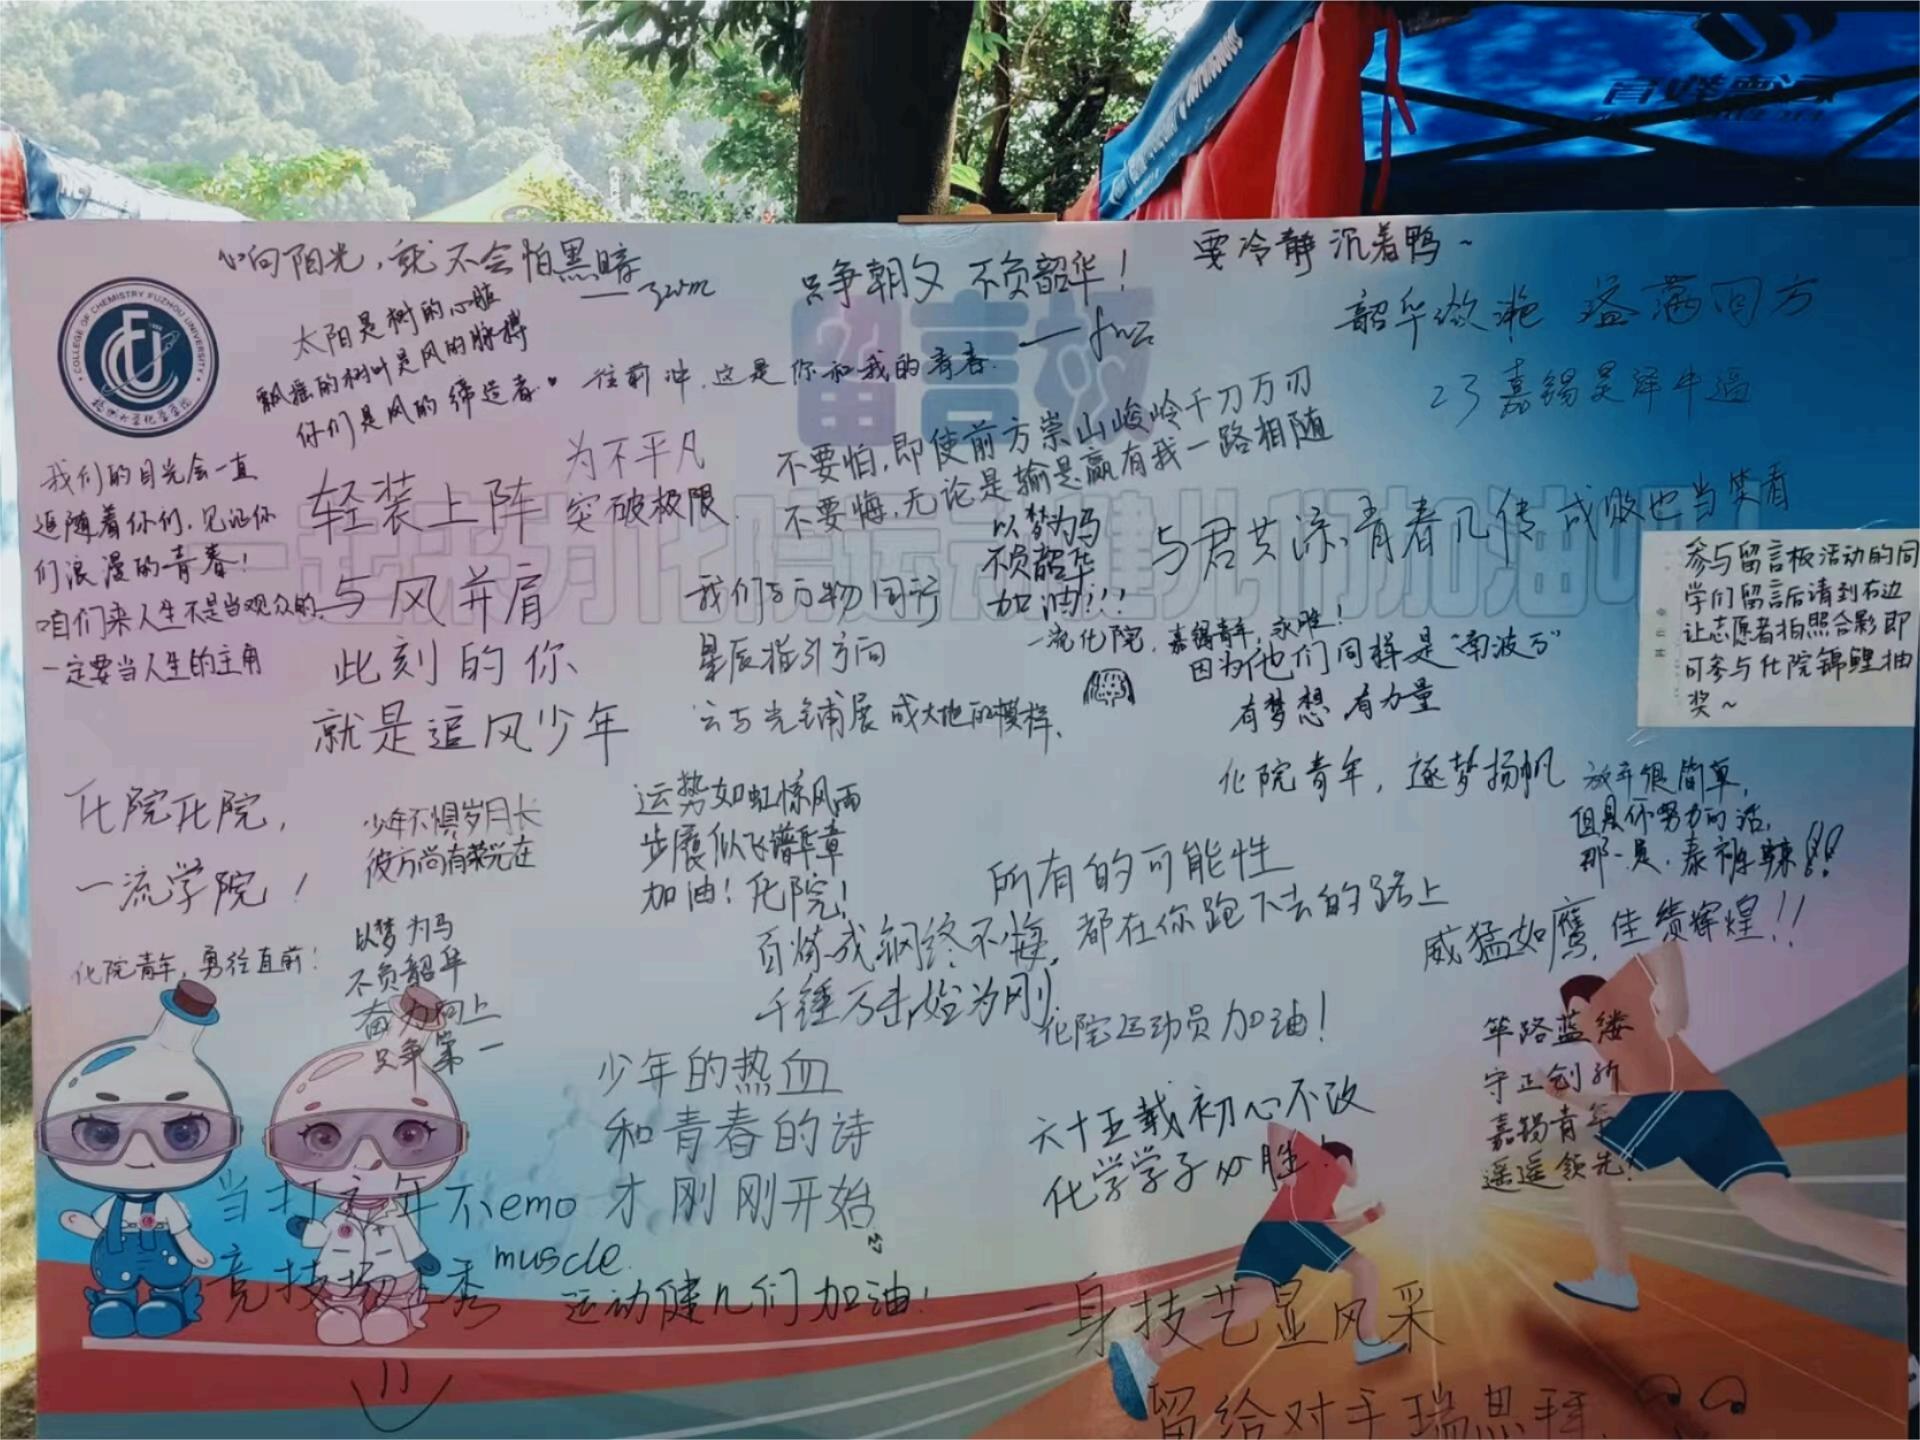 心向阳光，就不会怕黑暗
——zwm
只争朝夕 不负韶华！
——fwz
要冷静沉着鸭～
COLLEGE OF CHEMISTRY FUZHOU UNIVERSITY
福州大学化学学院
留言板
一起来为化院运动健儿们加油吧
太阳是树的心脏
树叶是风的脉搏
飘摇的
你们是风的缔造者
往前冲，这是你和我的青春.
韶华潋滟 溢满四方
23嘉锡吴泽牛逼
我们的目光会一直
追随着你们，见证你
们浪漫的青春！
咱们来人生不是当观众的
一定要当人生的主角
轻装上阵
与风并肩
此刻的你
就是追风少年
为不平凡
突破极限.
不要怕，即使前方崇山峻岭千刀万刃
不要悔，无论是输是赢有我一路相随
以梦为马
不负韶华
加油!!!
与君共 青春几 成败也当笑看
我们与万物同行
星辰指引方向
云与光铺展成大地的模样.
一流化院，嘉锡青年，永雄！
因为他们同样是“南波万”
有梦想 有力量
参与留言板活动的同
学们留言后请到右边
让志愿者拍照合影即
可参与化院锦鲤抽
奖～
化院化院，
一流学院！
少年不惧岁月长
彼方尚有荣光在
运势如虹惊风雨
步履似飞谱华章
加油！化院！
化院青年，逐梦扬帆
放弃很简单，
但是你努力的话，
那一定，泰裤辣!!
所有的可能性
都在你跑下去的路上
威猛如鹰，佳绩辉煌！！
化院青年，勇往直前！
以梦为马
不负韶华
奋力向上
只争第一
百炼成钢终不悔，
千锤万击始为刚
化院运动员加油！
少年的热血
和青春的诗
才刚刚开始
六十五载初心不改
化学学子必胜！
筚路蓝缕
守正创新
嘉锡青年
遥遥领先！
当打之年不emo
竞技场上秀muscle.
运动健儿们加油！
一身技艺显风采
留给对手瑞思拜.